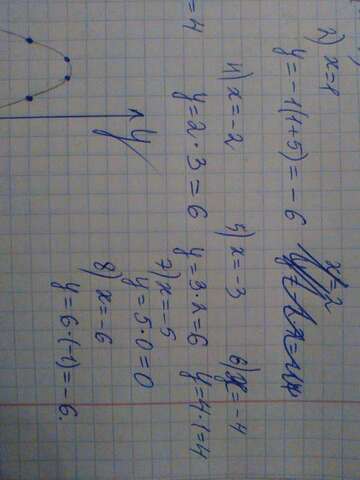 2) x=1
y=-1(1+5)=-6
=4
4) x=-2
y=2·3=6
5) x=-3
y=3·2=6
6) x=-4
y=4·1=4
7) x=-5
y=5·0=0
8) x=-6
y=6·(-1)=-6.
y